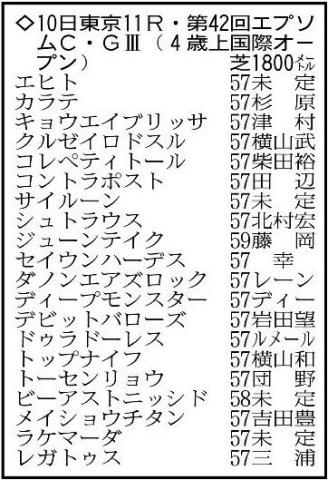 ◇10日東京11R・第42回エプソ
ムC・GⅢ(4歳上国際オー
プン) 芝1800メートル
エヒト 57未定
カラテ 57杉原
キョウエイブリッサ 57津村
クルゼイロドスル 57横山武
コレペティトール 57柴田裕
コントラポスト 57田辺
サイルーン 57未定
シュトラウス 57北村宏
ジューンテイク 59藤岡
セイウンハーデス 57幸
ダノンエアズロック 57レーン
ディープモンスター 57ディー
デビットバローズ 57岩田望
ドゥラドーレス 57ルメール
トップナイフ 57横山和
トーセンリョウ 57団野
ビーアストニッシド 58未定
メイショウチタン 57吉田豊
ラケマーダ 57未定
レガトゥス 57三浦